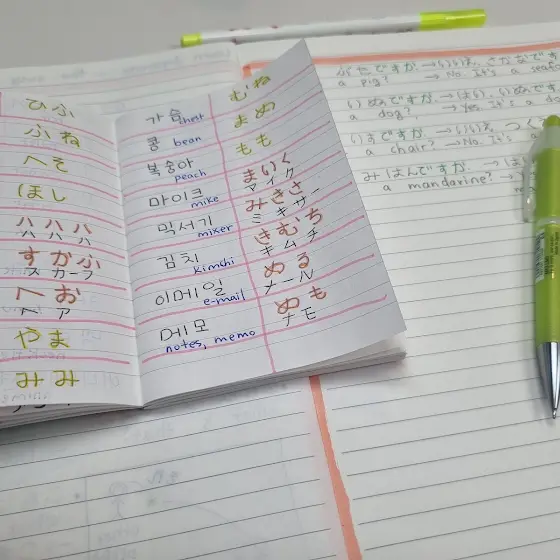 ひふ
ふね
へそ
ほし
ハハハ
ハハハ
すかふ
スカーフ
へお
ヘア
やま
みみ
가슴 chest むね
콩 bean まめ
복숭아 peach もも
마이크 mike まいく
マイク
믹서기 mixer みきさ
ミキサー
김치 kimchi きむち
キムチ
이메일 e-mail める
メール
메모 notes, memo めも
メモ
ぶたですか. →いいえ、さかなです
a pig? → No. It's a
いぬですか. →はい、いぬ
a dog? → Yes. It's a
いすですか. →いいえ、つく
a chair? → No. It's
みはんですか. → は
a mandarine? →